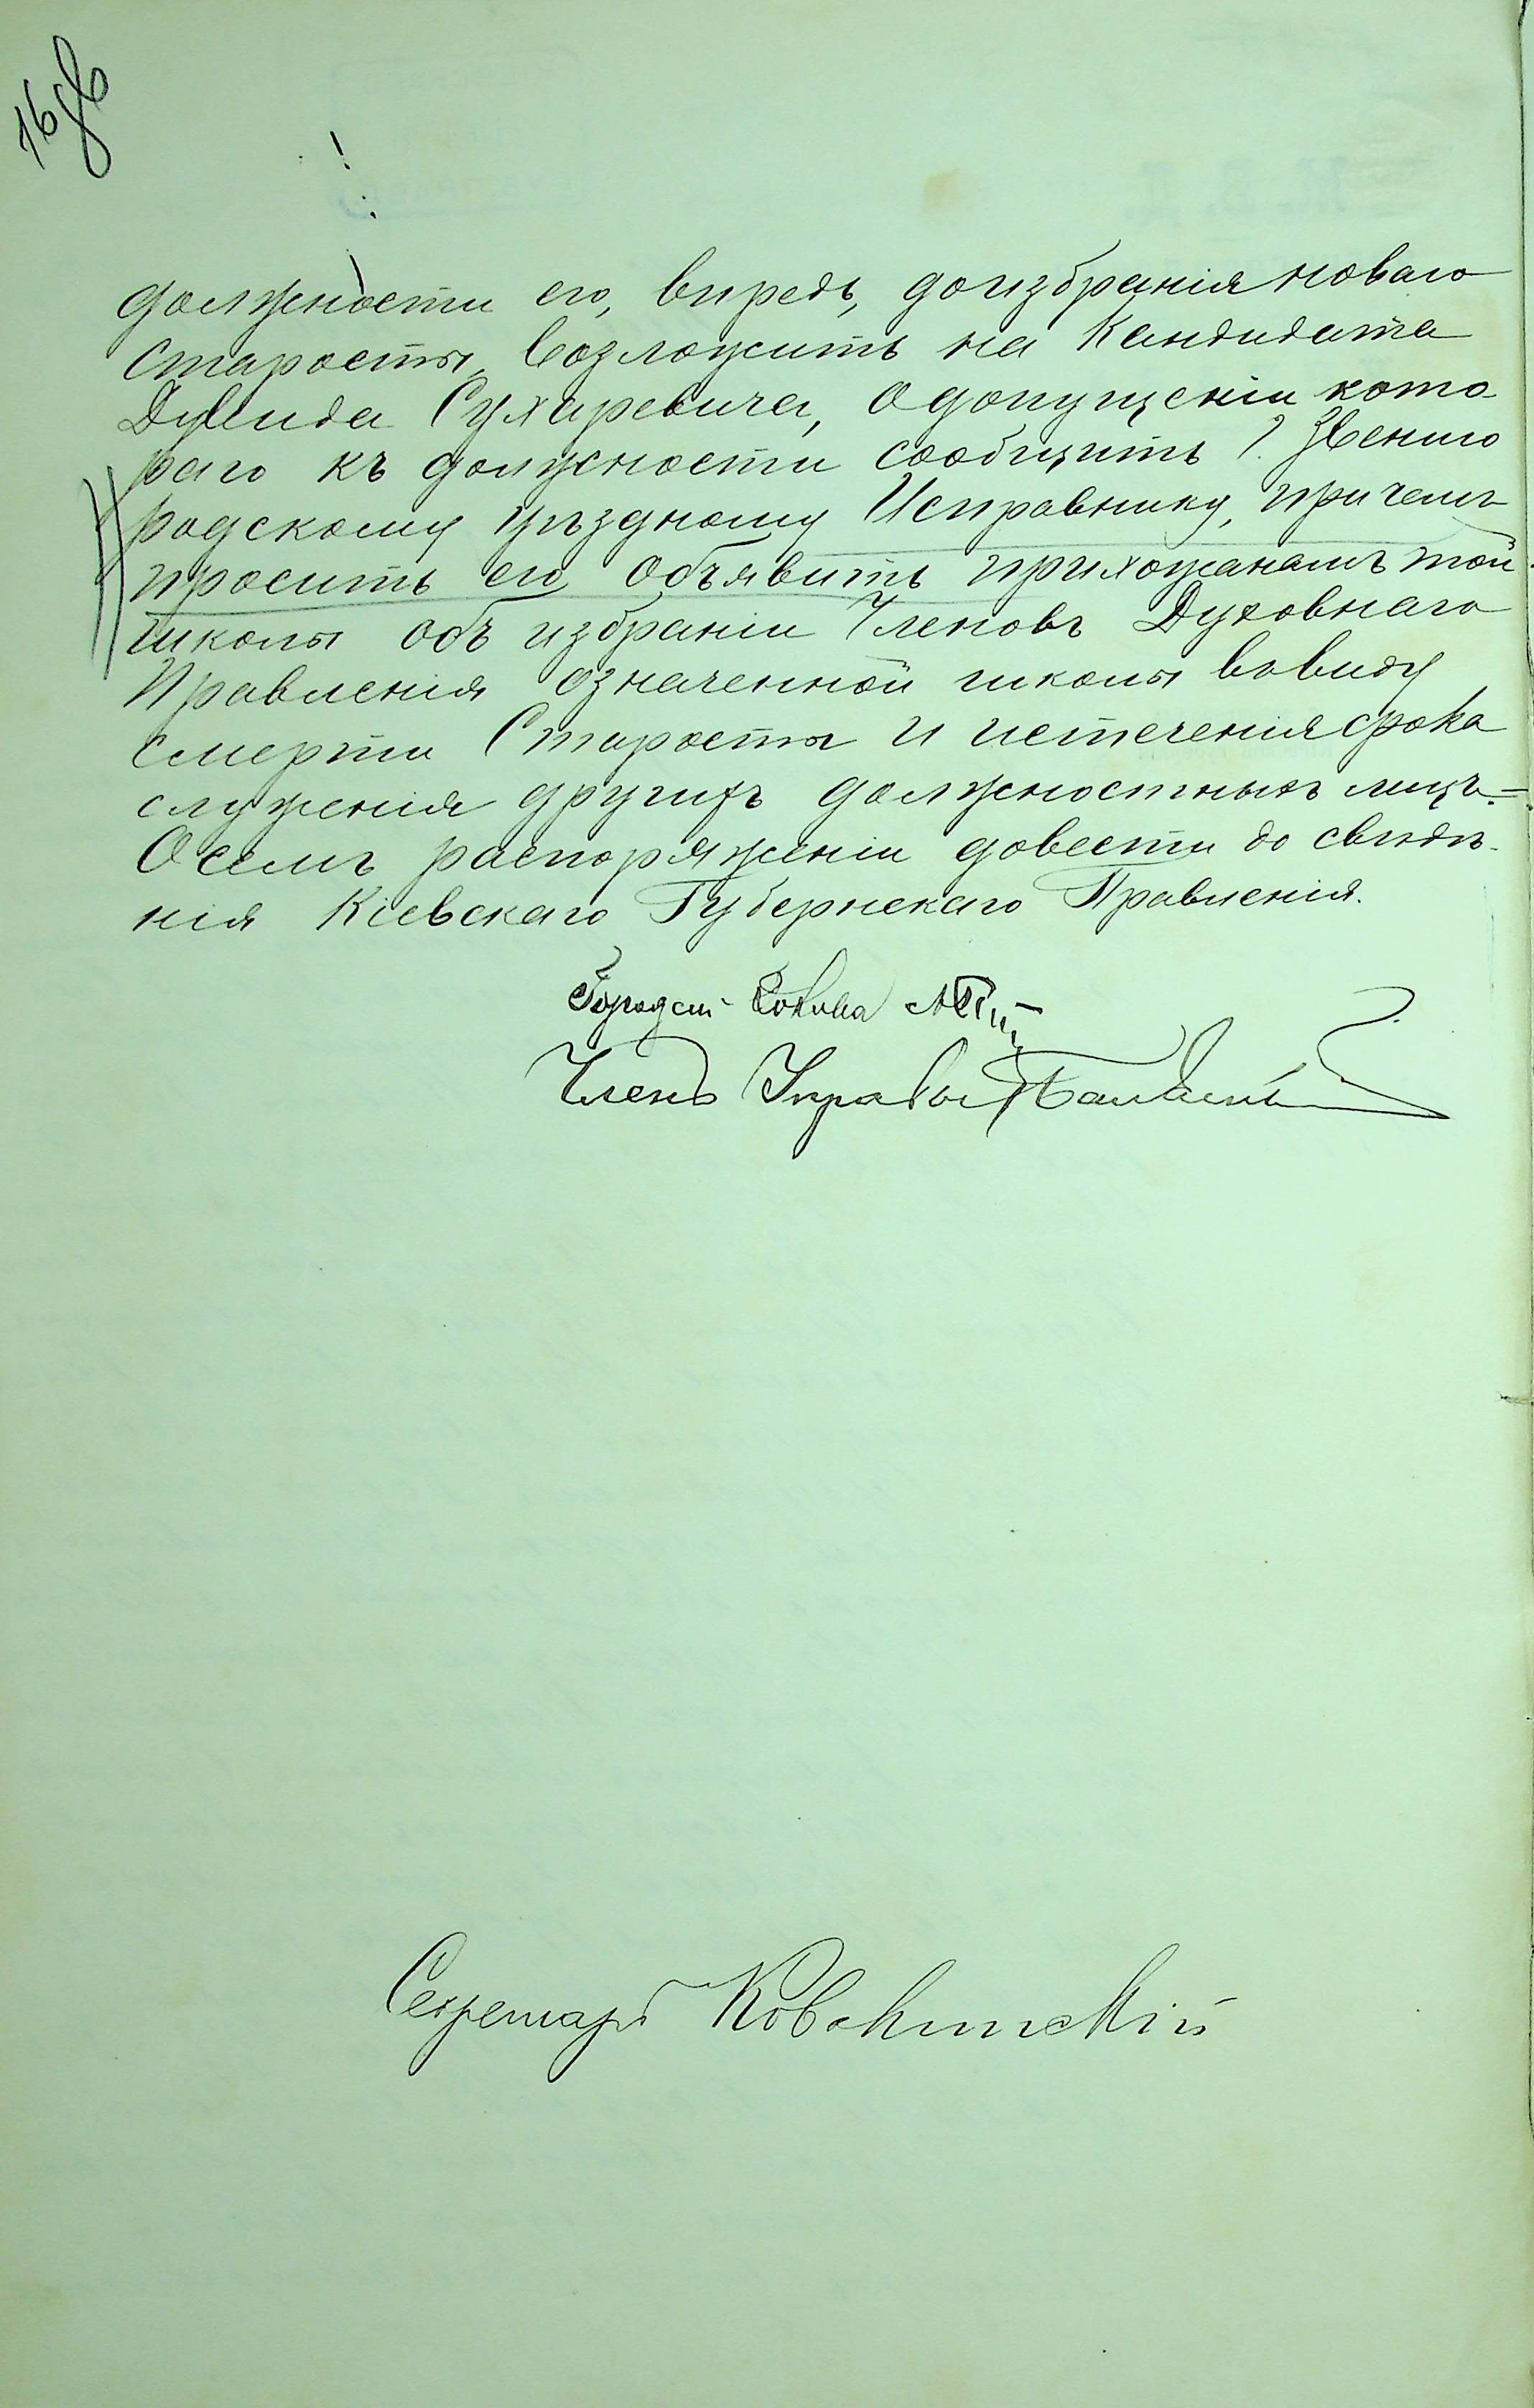 16 об
должности его, впредь, до избранія новаго
Старосты, возложить на Кандидата
Дувида Сухаревича, о допущеніи кото
раго къ должности сообщить Г. Звениго
родскому Уѣздному Исправнику, при чемъ
просить его объявить прихожанамъ той
школы объ избраніи Членовъ Духовнаго
Правленія означенной школы въ виду
смерти Старосты и истеченія срока
служенія другихъ должностныхъ лицъ.
О семъ распоряженіи довести до свѣдѣ-
нія Кіевскаго Губернскаго Правленія.
Городск Голова
Членъ Управы
Секретарь